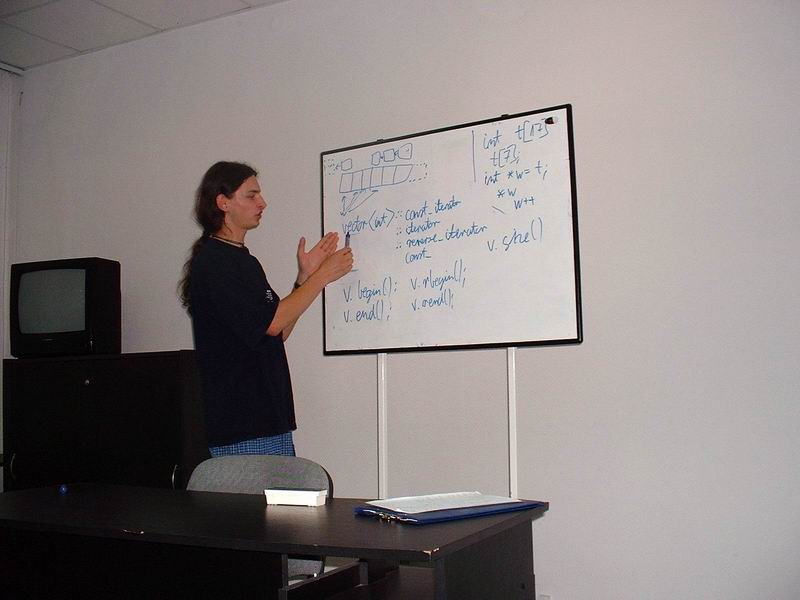 int t[17]
t[7];
int *w = t;
*w
w++
vector<int>:: const_iterator
:: iterator
:: reverse_iterator
const_
v. size()
v. begin(); v. rbegin();
v. end(); v. rend();